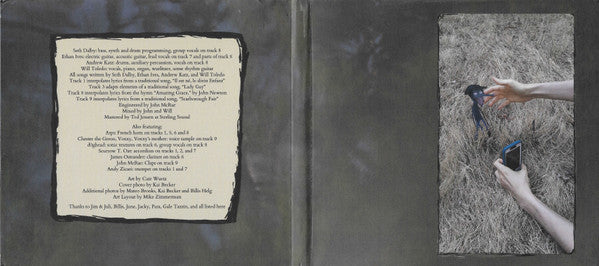 Seth Dalby: bass, synth and drum programming, group vocals on track 8
Ethan Ives: electric guitar, acoustic guitar, lead vocals on track 7 and parts of track 8
Andrew Katz: drums, auxiliary percussion, vocals on track 8
Will Toledo: vocals, piano, organ, wurlitzer, some rhythm guitar
All songs written by Seth Dalby, Ethan Ives, Andrew Katz, and Will Toledo
Track 1 interpolates lyrics from a traditional song, "Il est né, le divin Enfant"
Track 3 adapts elements of a traditional song, "Lady Gay"
Track 8 interpolates lyrics from the hymn "Amazing Grace," by John Newton
Track 9 interpolates lyrics from a traditional song, "Scarborough Fair"
Engineered by John McRae
Mixed by John and Will
Mastered by Ted Jensen at Sterling Sound
Also featuring:
French horn on tracks 1, 5, 6 and 8
Chester the Genou, Voxxy, Voxxy's mother: voice sample on track 9
some textures on track 6, group vocals on track 8
Sourcow T. Oat: accordion on tracks 1, 2, and 7
James Ostrander: clarinet on track 8
John McRae: Claps on track 9
Andy Zicari: trumpet on tracks 1 and 7
Art by Cate Wurtz
Cover photo by Kai Becker
Additional photos by Mateo Brooks, Kai Becker and Billis Helg
Art Layout by Mike Zimmerman
Thanks to Jim & Juli, Billis, June, Jacky, Pass, Gale Tantin, and all listed here